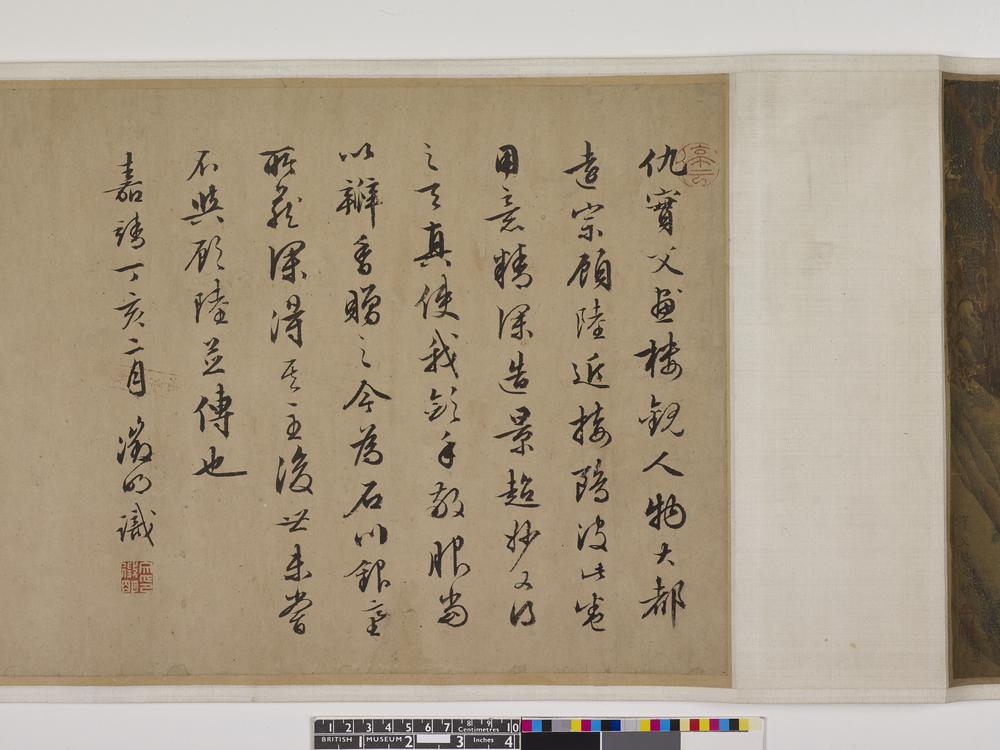 仇實父畫樓觀人物大都
遠宗顧陸近接鷗波此卷
用意精深造景超妙又得
之天真使我斂手敬服當
以瓣香贈之今為石川銀臺
所藏深得其主後世未嘗
不與顧陸並傳也
嘉靖丁亥二月 徵明識
1 2 3 4 5 6 7 8 9 10
Centimetres
BRITISH MUSEUM 1 2 3 Inches 4